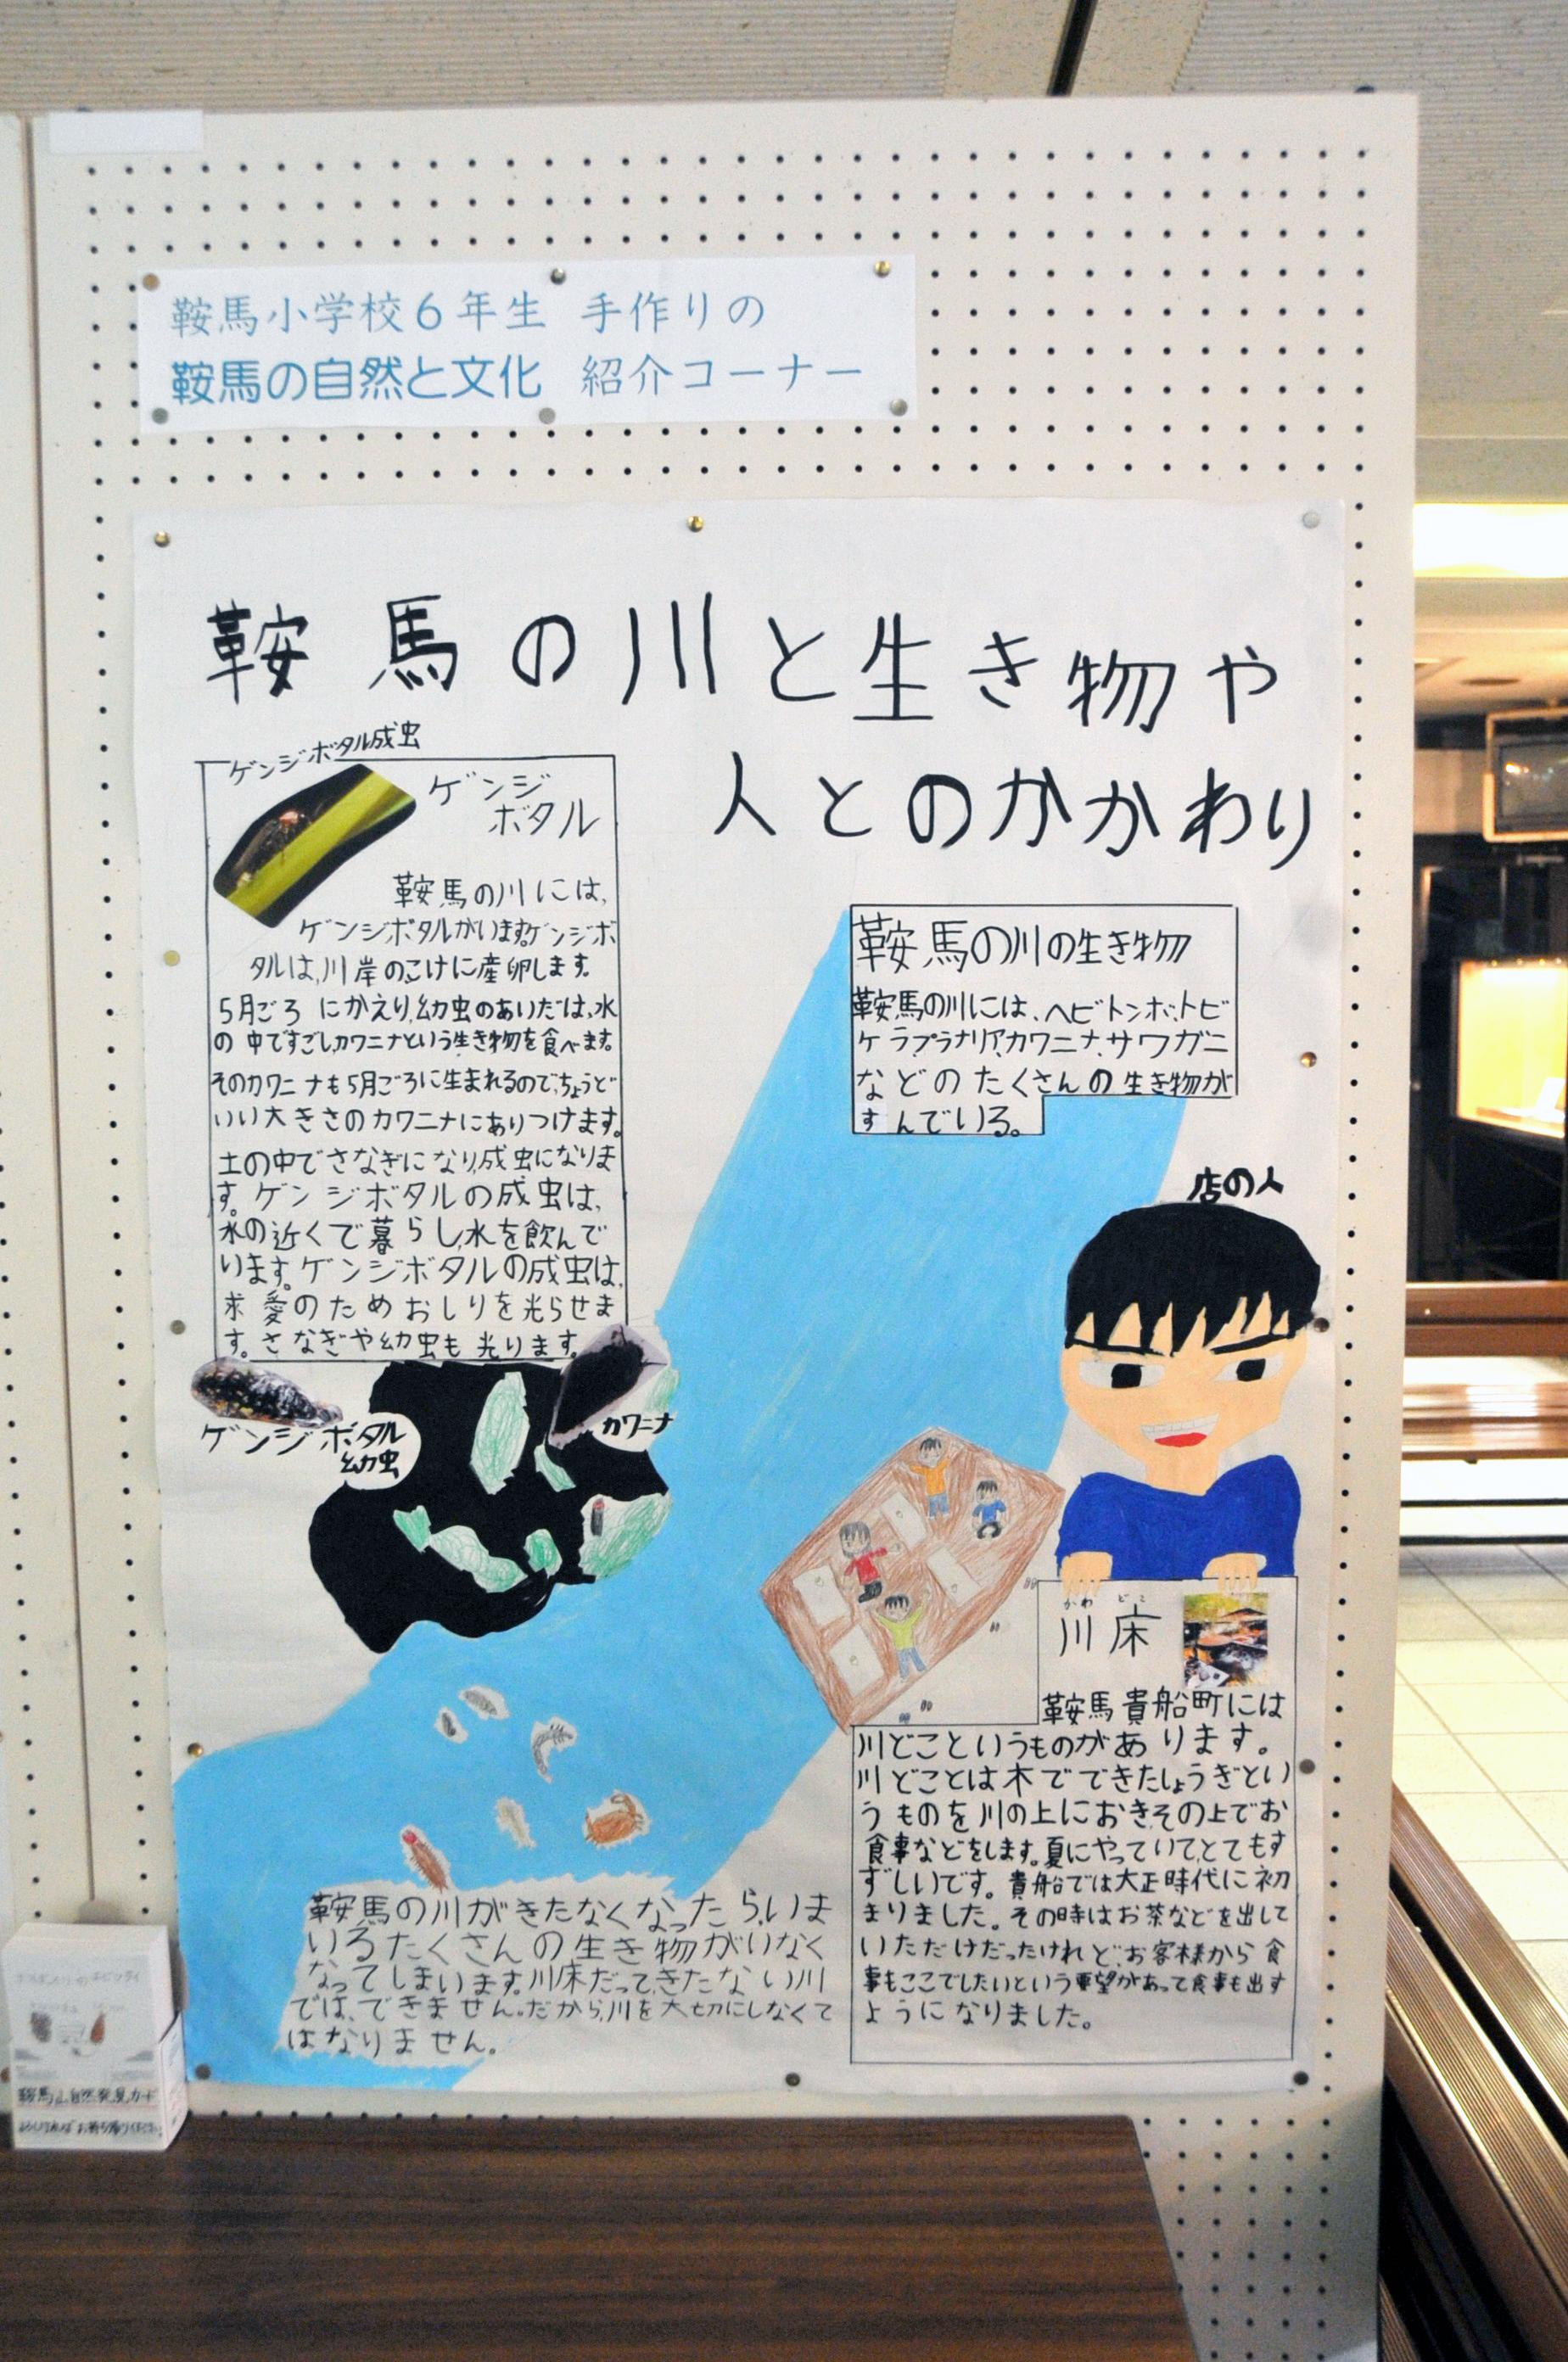 鞍馬小学校6年生 手作りの
鞍馬の自然と文化 紹介コーナー
鞍馬の川と生き物や
人とのかかわり
ゲンジボタル成虫
ゲンジ
ボタル
鞍馬の川には,
ゲンジボタルがいます。ゲンジボ
タルは,川岸のこけに産卵します。
5月ごろ にかえり,幼虫のあいだは,水
の中ですごし,カワニナという生き物を食べます。
そのカワニナも5月ごろに生まれるので,ちょうど
いい大きさのカワニナにありつけます。
土の中でさなぎになり,成虫になりま
す。ゲンジボタルの成虫は,
水の近くで暮らし,水を飲んで
います。ゲンジボタルの成虫は,
求愛のためおしりを光らせま
す。さなぎや幼虫も光ります。
ゲンジボタル
幼虫
カワニナ
鞍馬の川の生き物
鞍馬の川には、ヘビトンボ、トビ
ケラ、プラナリア、カワニナ、サワガニ
などのたくさんの生き物が
すんでいる。
店の人
かわ どこ
川床
鞍馬貴船町には
川どこというものがあります。
川どことは木でできたしょうぎとい
うものを川の上におき,その上でお
食事などをします。夏にやっていて,とてもす
ずしいです。貴船では大正時代に初
まりました。その時はお茶などを出して
いただけだったけれど、お客様から食
事もここでしたいという要望があって食事も出す
ようになりました。
鞍馬の川がきたなくなったら,いま
いるたくさんの生き物がいなく
なってしまいます。川床だって,きたない川
では、できません。だから,川を大切にしなくて
はなりません。